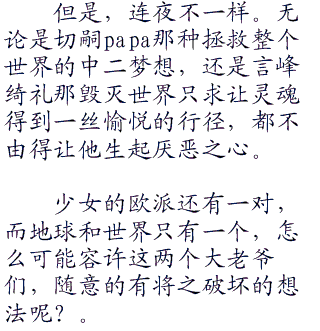 但是，连夜不一样。无
论是切嗣papa那种拯救整个
世界的中二梦想，还是言峰
绮礼那毁灭世界只求让灵魂
得到一丝愉悦的行径，都不
由得让他生起厌恶之心。
少女的欧派还有一对，
而地球和世界只有一个，怎
么可能容许这两个大老爷
们，随意的有将之破坏的想
法呢？。